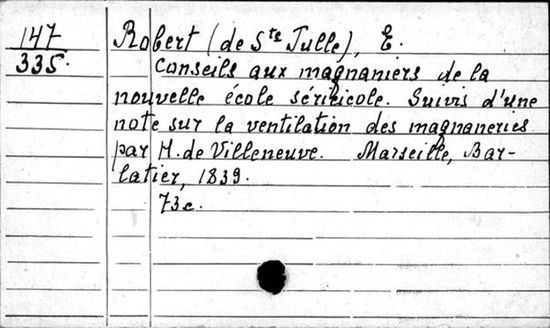 147 Robert (de Ste Tulle), E.
335. Conseils aux magnaniers de la
nouvelle école séricicole. Suivis d'une
note sur la ventilation des magnaneries
par H. de Villeneuve. Marseille, Bar-
latier, 1839.
73c.